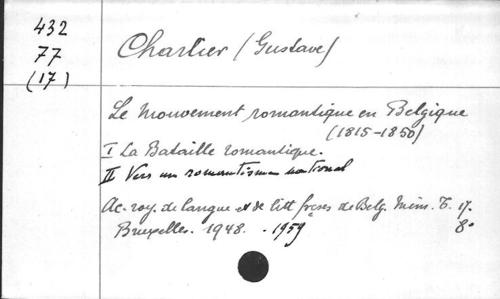 432
77
(17)
Charlier (Gustave)
Le Mouvement romantique en Belgique
(1815-1850)
I La Bataille romantique.
II Vers un romantisme national
Ac. roy. de langue et de litt frçses de Belg. Mém. T. 17.
Bruxelles. 1948. - 1959
8°